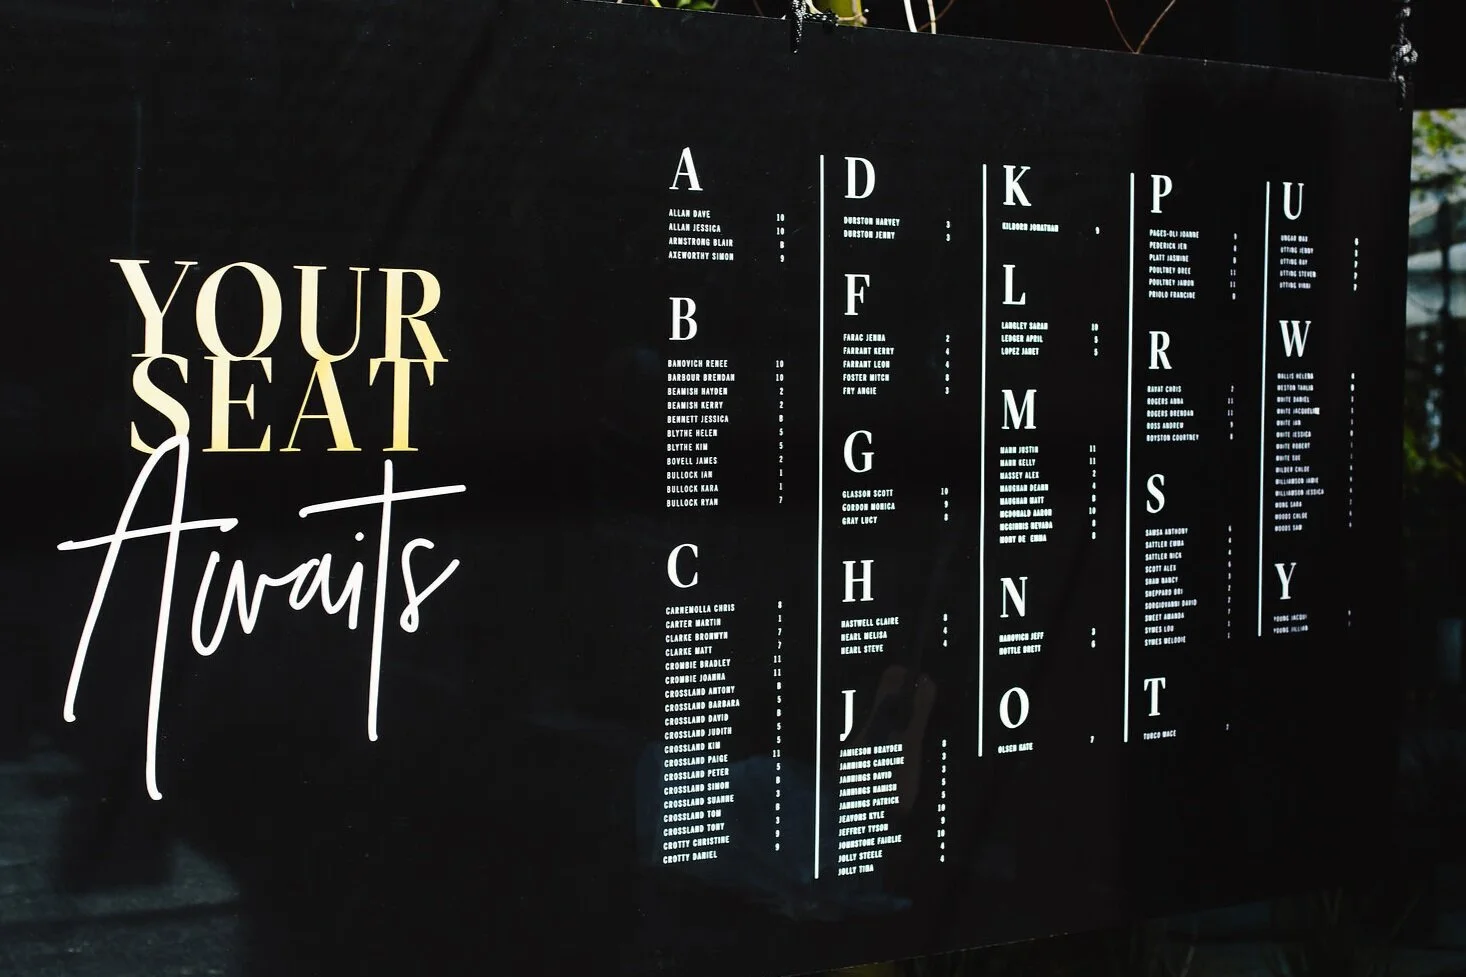 YOUR
SEAT
Awaits
A
ALLAN DAVE 10
ALLAN JESSICA 10
ARMSTRONG BLAIR 8
AXEWORTHY SIMON 9
B
BANOVICH RENEE 10
BARBOUR BRENDAN 10
BEAMISH HAYDEN 2
BEAMISH KERRY 2
BENNETT JESSICA 8
BLYTHE HELEN 5
BLYTHE KIM 5
BOVELL JAMES 2
BULLOCK IAN 1
BULLOCK KARA 1
BULLOCK RYAN 7
C
CARNEMOLLA CHRIS 8
CARTER MARTIN 1
CLARKE BRONWYN 7
CLARKE MATT 7
CROMBIE BRADLEY 11
CROMBIE JOANNA 11
CROSSLAND ANTONY
CROSSLAND BARBARA
CROSSLAND DAVID
CROSSLAND JUDITH
CROSSLAND KIM
CROSSLAND PAIGE
CROSSLAND PETER
CROSSLAND SIMON
CROSSLAND SUANNE
CROSSLAND TOM
CROSSLAND TONY
CROTTY CHRISTINE
CROTTY DANIEL
D
DURSTON HARVEY 3
DURSTON JENNY 3
F
FARAC JENNA 2
FARRANT KERRY 4
FARRANT LEON 4
FOSTER MITCH 8
FRY ANGIE 3
G
GLASSON SCOTT 10
GORDON MONICA 9
GRAY LUCY 8
H
HASTWELL CLAIRE 8
HEARL MELISA 4
HEARL STEVE 4
J
JAMIESON BRAYDEN
JANNINGS CAROLINE
JANNINGS DAVID
JANNINGS HAMISH
JANNINGS PATRICK
JEAVONS KYLE
JEFFREY TYSON
JOHNSTONE FAIRLIE
JOLLY STEELE
JOLLY TINA
K
KILBORN JONATHAN 9
L
LANGLEY SARAH 10
LEDGER APRIL 5
LOPEZ JANET 5
M
MANN JUSTIN 11
MANN KELLY 11
MASSEY ALEX 2
MAUGHAN DEANN 4
MAUGHAN MATT
MCDONALD AARON 10
MCGINNIS NEVADA 8
MONY DE EMMA 8
N
NANOVICH JEFF 3
NOTTLE BRETT 6
O
OLSEN KATE 7
P
PAGES-OLI JOANNE
PEDERICK JEN
PLATT JASMINE
POULTNEY BREE 11
POULTNEY JAMON 11
PRIOLO FRANCINE
R
RAVAT CHRIS
ROGERS ANNA 11
ROGERS BRENDAN 11
ROSS ANDREW
ROYSTON COURTNEY
S
SAMSA ANTHONY
SATTLER EMMA
SATTLER NICK
SCOTT ALEX
SHAW NANCY
SHEPPARD BRI
SORGIOVANNI DAVID
SWEET AMANDA
SYMES LOU
SYMES MELODIE
T
TURCO MACE 7
U
UNGAR MAX
UTTING JENNY
UTTING RAY
UTTING STEVEN
UTTING VINNI
W
WALLIS HELENA
WESTON TAHLIA
WHITE DANIEL
WHITE JACQUELINE
WHITE JAN
WHITE JESSICA
WHITE ROBERT
WHITE SUE
WILDER CHLOE
WILLIAMSON JAMIE
WILLIAMSON JESSICA
WONG SARA
WOODS CHLOE
WOODS SAM
Y
YOUNG JACQUI
YOUNG JILLIAN